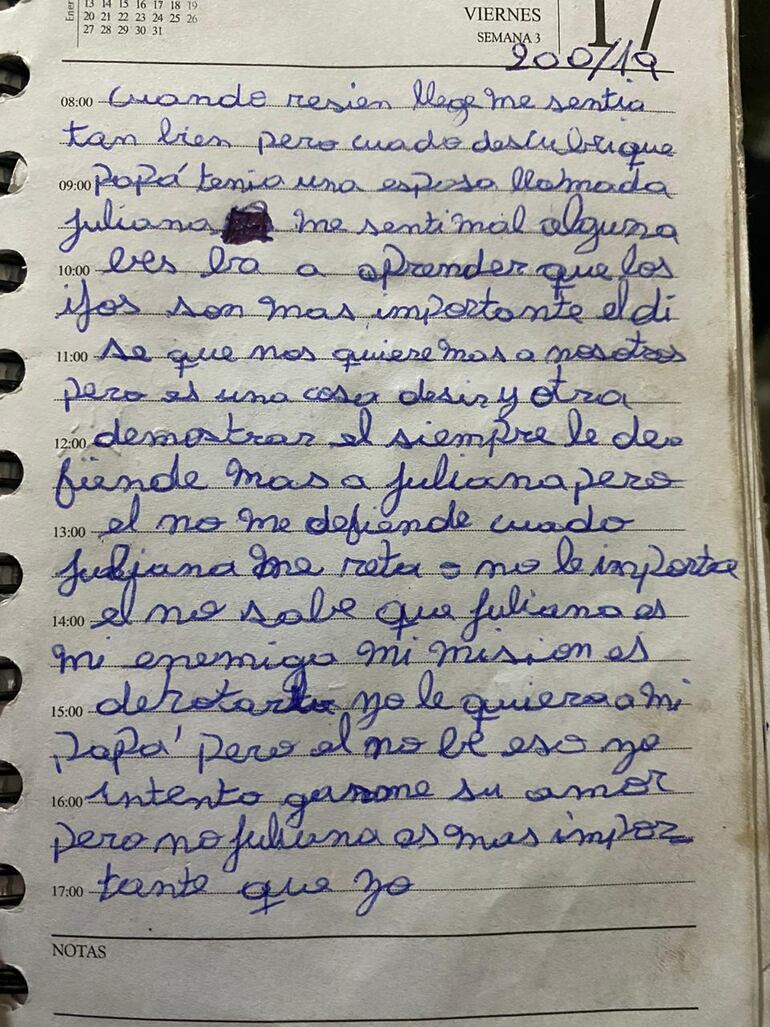 Ener
13 14 15 16 17 18 19
20 21 22 23 24 25 26
27 28 29 30 31
VIERNES
SEMANA 3
17
200/19
08:00 cuando resien llege me sentia
tan bien pero cuado descubri que
09:00 papá tenia una esposa llamada
juliana me senti mal alguna
10:00 bes ba a aprender que los
ijos son mas importante el di
11:00 se que nos quiere mas a nosotros
pero es una cosa desir y otra
12:00 demostrar el siempre le de
fiende mas a juliana pero
13:00 el no me defiende cuado
juliana me reta o no le importa
14:00 el no sabe que juliana es
mi enemiga mi mision es
15:00 derotarla yo le quiero a mi
papá pero el no bé eso yo
16:00 intento ganarme su amor
pero no juliana es mas impor
17:00 tante que yo
NOTAS